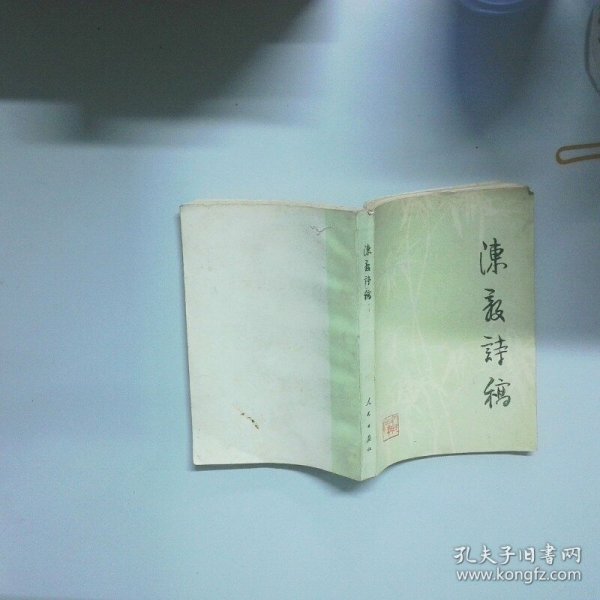 陳毅詩稿
陳毅詩稿
人民出版社
孔夫子旧书网
www.kongfz.com